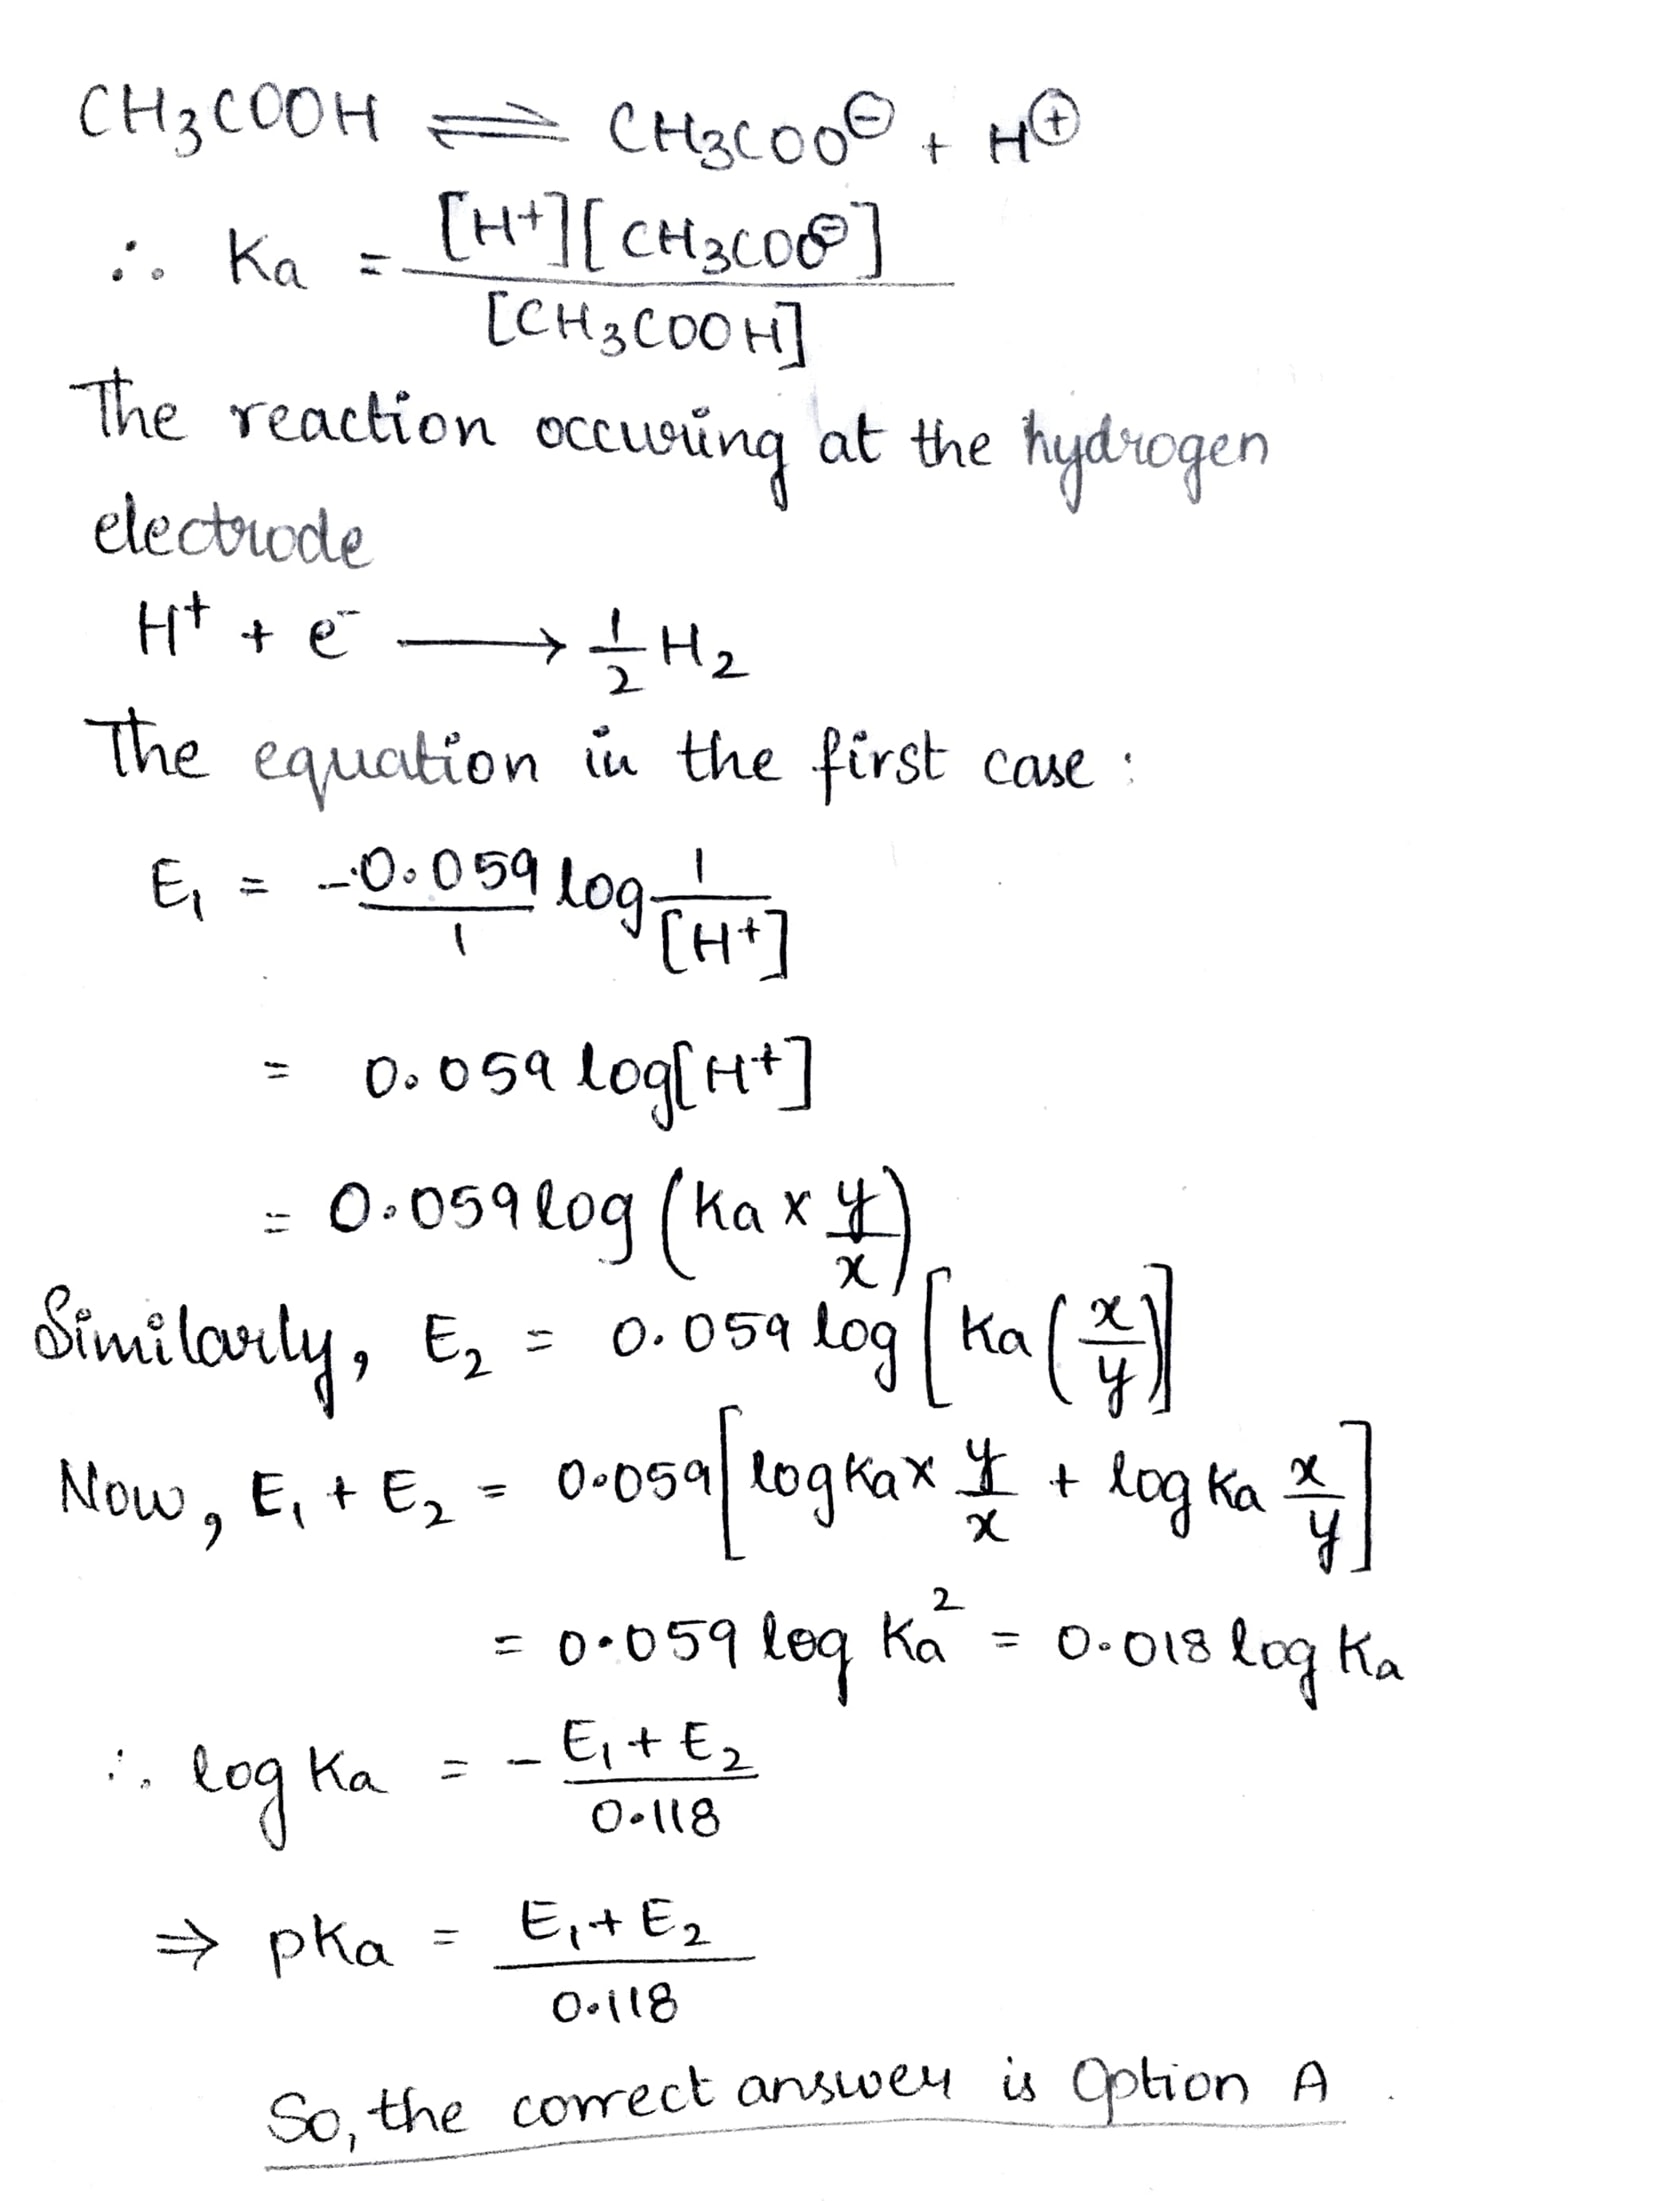 CH₃COOH ⇌ CH₃COO⊖ + H⊕
∴ Ka = [H⁺][CH₃COO⊖] / [CH₃COOH]
The reaction occuring at the hydrogen
electrode
H⁺ + e⁻ ⟶ 1/2 H₂
The equation in the first case :
E₁ = -0.059/1 log 1/[H⁺]
= 0.059 log[H⁺]
= 0.059 log (Ka × y/x)
Similarly, E₂ = 0.059 log [Ka (x/y)]
Now, E₁ + E₂ = 0.059 [log Ka × y/x + log Ka x/y]
= 0.059 log Ka² = 0.018 log Ka
∴ log Ka = - E₁ + E₂ / 0.118
⇒ pKa = E₁ + E₂ / 0.118
So, the correct answer is Option A .